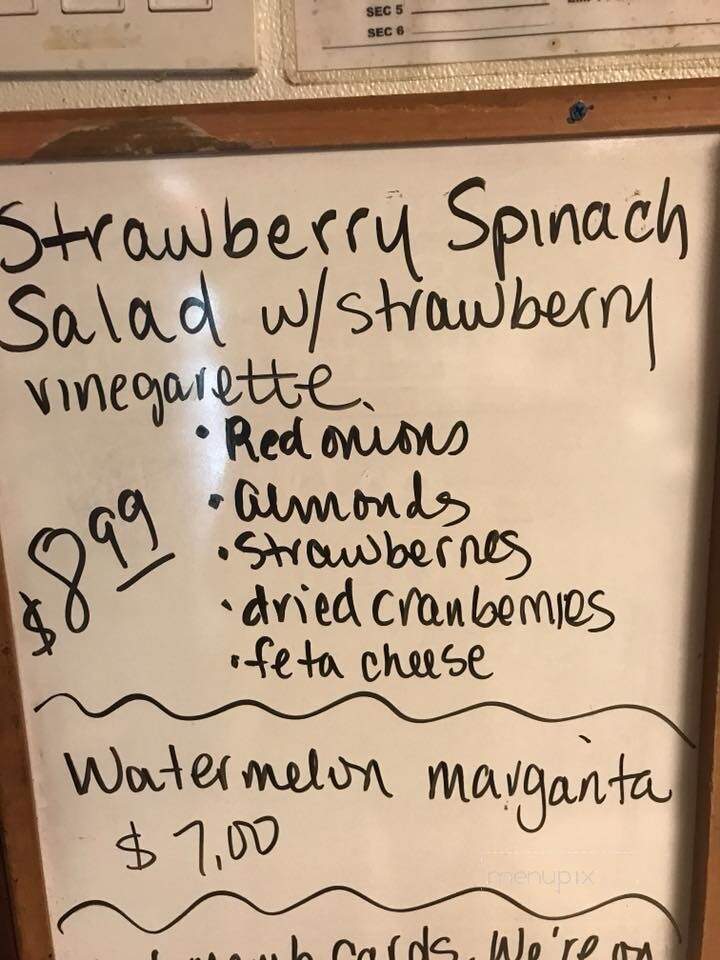 SEC 5
SEC 6
Strawberry Spinach
Salad w/strawberry
vinegarette
• Red onions
• almonds
$8.99
• Strawberries
• dried cranberries
• feta cheese
Watermelon margarita
$7.00
menupix
cards. We're on